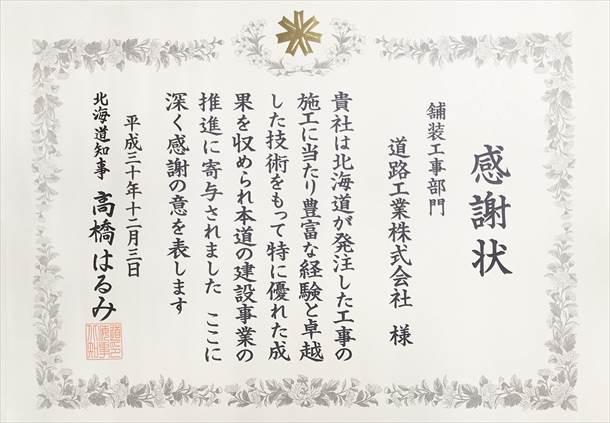 感謝状
舗装工事部門
道路工業株式会社 様
貴社は北海道が発注した工事の
施工に当たり豊富な経験と卓越
した技術をもって特に優れた成
果を収められ本道の建設事業の
推進に寄与されました ここに
深く感謝の意を表します
平成三十年十二月三日
北海道知事 高橋はるみ